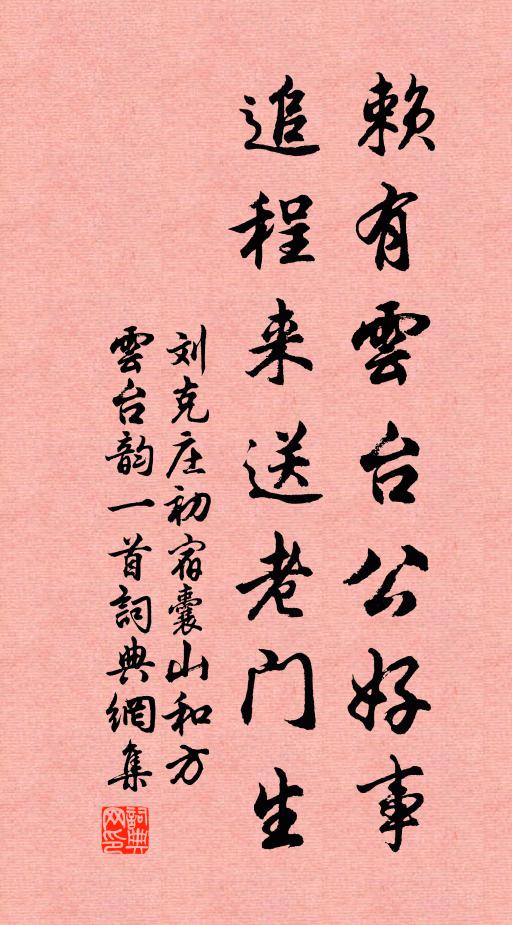 賴有雲台公好事
追程来送老门生
刘克庄初宿囊山和方
雲台韵一首詞典網集
詞典网印